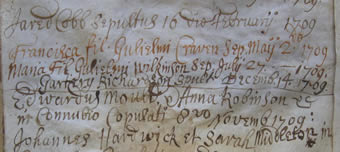 Jared Cobb Sepultus 16 die Februarij 1709
Francisca Fil. Gulielmi Craven Sep. Maij 2nd 1709
Maria Fil. Gulielmi Wilkinson Sep. July 27 1709.
Richardson Decemb 14 1709
Edwardus & Anna Robinson
in Connubio Copulati Novemb 1709:
Johannes Hardwick et Sarah Midleton in